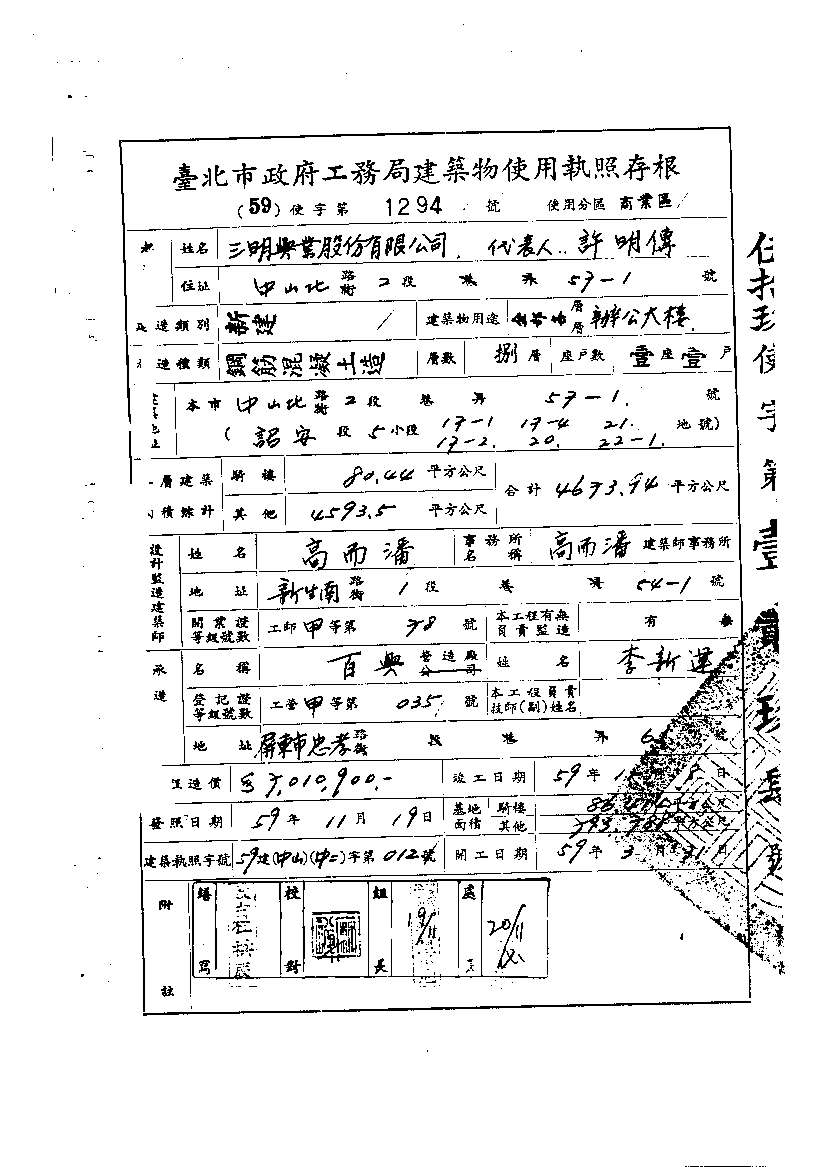 臺北市政府工務局建築物使用執照存根
(59)使字第 1294 號 使用分區 商業區
姓名 三明興業股份有限公司. 代表人..許明傳
住址 中山北路街2段 巷 弄 57-1 號
造類別 新建 建築物用途 層層辦公大樓
造種類 鋼筋混凝土造 層數 捌層 座戶數 壹座壹戶
本市 中山北路街2段 巷 弄 57-1. 號
(詔安段5小段 17-1 17-4 21. 地號)
17-2. 20. 22-1.
層建築 騎樓 80.44 平方公尺 合計 4673.94 平方公尺
積總計 其他 4593.5 平方公尺
設計監造建築師 姓名 高而潘 事務所名稱 高而潘 建築師事務所
地址 新生南路街 1段 巷 弄 54-1 號
開業證等級號數 工師甲等第 78 號 本工程有無負責監造 有 無
承造 名稱 百興 營造廠公司 姓名 李新
登記證等級號數 工營甲等第 035 號 本工程負責技師(副)姓名
地址 屏東市忠孝路街 段 巷 弄 號
造價 7,010,900.- 竣工日期 59年 日
發照日期 59年11月19日 基地面積 騎樓 平方公尺
其他 平方公尺
建築執照字號 59建(中山)(中二)字第012號 開工日期 59年3月31日
附註 繕寫 校對 組長 19/11 處 20/11
使字第壹